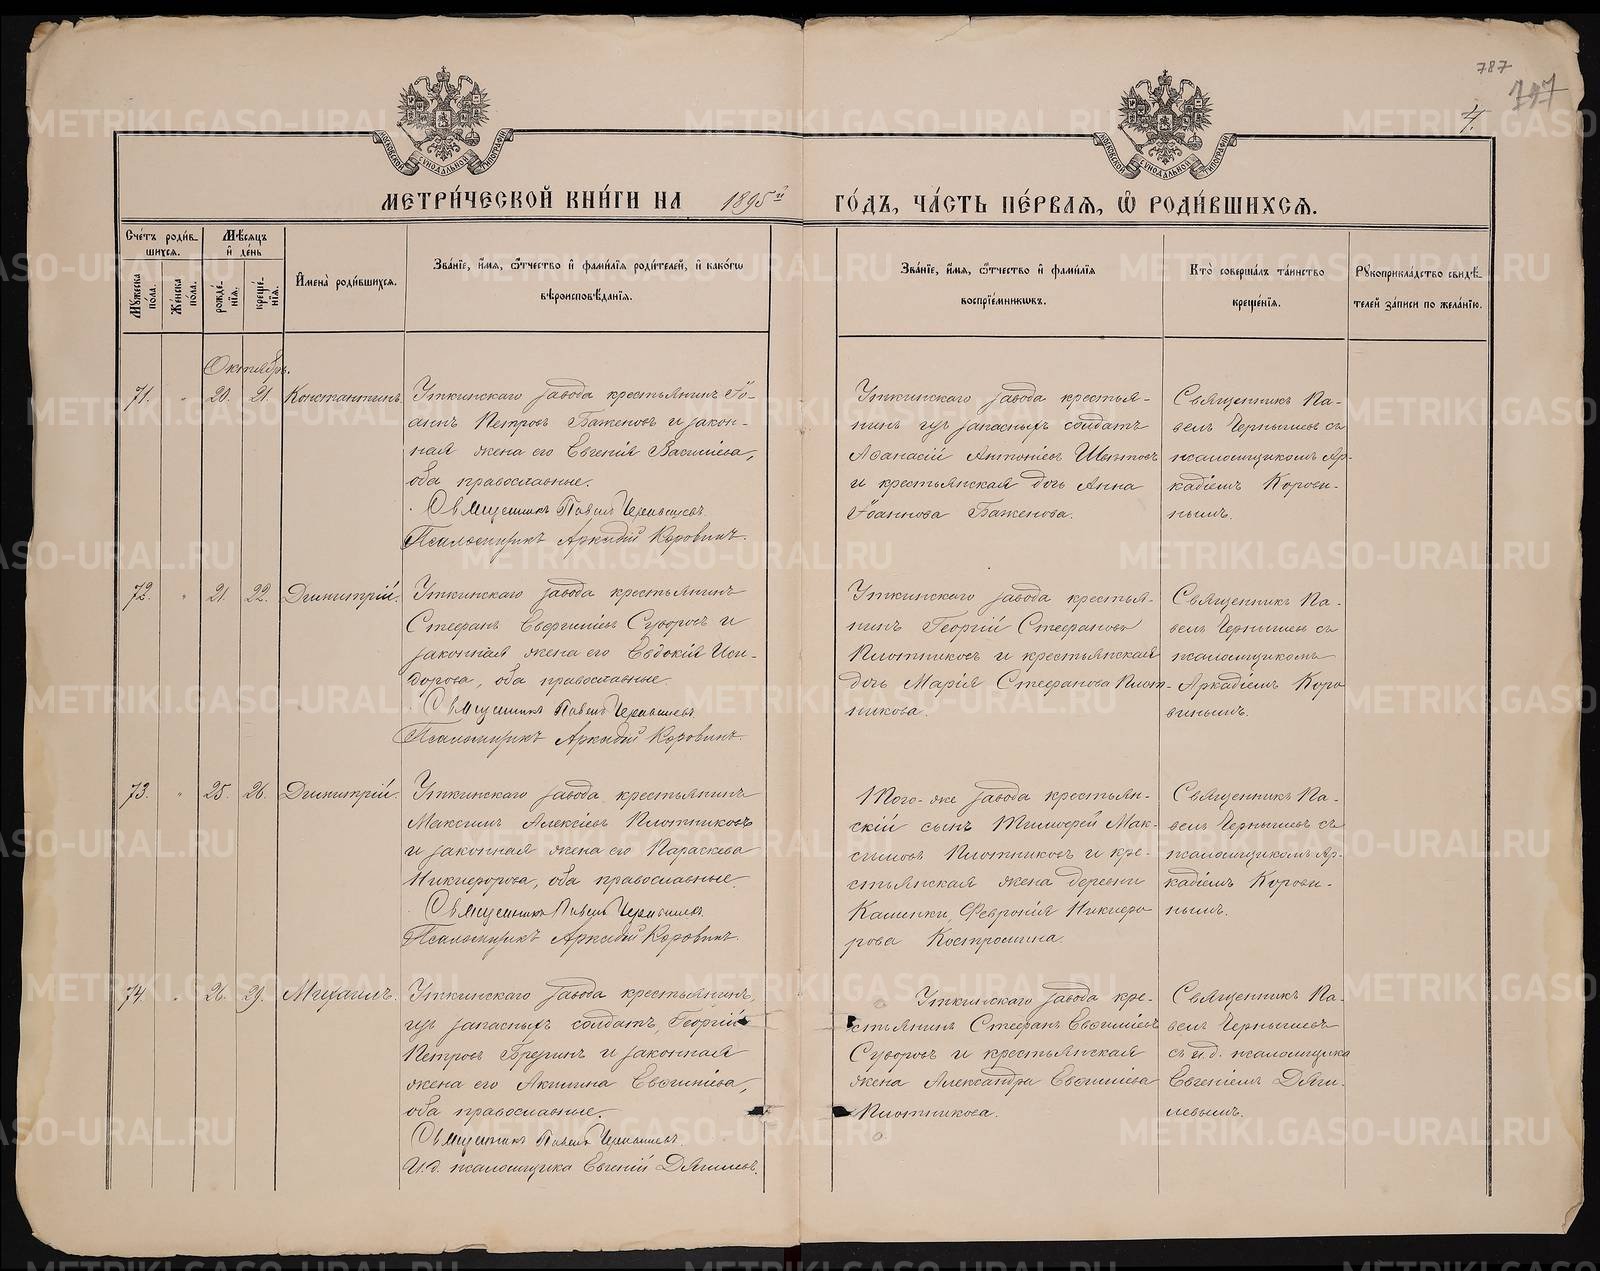 787
797
4.
МОСКОВСКОЙ СѴНОДАЛЬНОЙ ТИПОГРАФІИ
МОСКОВСКОЙ СѴНОДАЛЬНОЙ ТИПОГРАФІИ
МЕТРИ́ЧЕСКОЙ КНИ́ГИ НА 1895й ГО́ДЪ, ЧА́СТЬ ПЕ́РВАЯ, Ѽ РОДИ́ВШИХСЯ.
Сче́тъ роди́вшихся.
Мѣ́сяцъ и҆ де́нь
Мꙋ́жеска по́ла.
Же́нска по́ла.
рожде́нїѧ.
креще́нїѧ.
И҆мена̀ роди́вшихсѧ.
Зва́нїе, и҆́мѧ, ѻ҆́тчество и҆ фами́лїѧ роди́телей, и҆ како́гѡ
вѣроисповѣ́данїѧ.
Зва́нїе, и҆́мѧ, ѻ҆́тчество и҆ фами́лїѧ
воспрїе́мникѡвъ.
Кто̀ соверша́лъ та́инство
креще́нїѧ.
Рꙋкоприкла́дство свидѣ́-
телей за́писи по жела́нїю.
Октябрь.
71. " 20. 21. Константинъ.
Уткинскаго завода крестьянинъ Іо-
аннъ Петровъ Баженовъ и закон-
ная жена его Евгенія Васильева,
оба православные.
Священникъ Павелъ Чернышевъ
Псаломщикъ Аркадій Коровинъ.
Уткинскаго завода крестья-
нинъ изъ запасныхъ солдатъ
Аѳанасій Антоніевъ
и крестьянская дочь Анна
Іоаннова Баженова.
Священникъ Па-
велъ Чернышевъ съ
псаломщикомъ Ар-
кадіемъ Корови-
нымъ.
72. " 21. 22. Димитрій.
Уткинскаго завода крестьянинъ
Стефанъ Евфиміевъ Суворовъ и
законная жена его Евдокія Иси-
дорова, оба православные.
Священникъ Павелъ Чернышевъ
Псаломщикъ Аркадій Коровинъ.
Уткинскаго завода крестья-
нинъ Георгій Стефановъ
Плотниковъ и крестьянская
дочь Марія Стефанова Плот-
никова.
Священникъ Па-
велъ Чернышевъ съ
псаломщикомъ
Аркадіемъ Коро-
винымъ.
73. " 25. 26. Димитрій.
Уткинскаго завода крестьянинъ
Максимъ Алексіевъ Плотниковъ
и законная жена его Параскева
Никифорова, оба православные.
Священникъ Павелъ Чернышевъ.
Псаломщикъ Аркадій Коровинъ.
Того-же завода крестьян-
скій сынъ Тимофей Мак-
симовъ Плотниковъ и кре-
стьянская жена деревни
Каменки, Февронія Никифо-
рова Костромина.
Священникъ Па-
велъ Чернышевъ съ
псаломщикомъ Ар-
кадіемъ Корови-
нымъ.
74. " 26. 29. Михаилъ.
Уткинскаго завода крестьянинъ,
изъ запасныхъ солдатъ, Георгій
Петровъ Брезгинъ и законная
жена его Акилина Евфиміева,
оба православные.
Священникъ Павелъ Чернышевъ.
И.д. псаломщика Евгеній Дягилевъ.
Уткинскаго завода кре-
стьянинъ Стефанъ Евфиміевъ
Суворовъ и крестьянская
жена Александра Евфиміева
Плотникова.
Священникъ Па-
велъ Чернышевъ
съ и.д. псаломщика
Евгеніемъ Дяги-
левымъ.
METRIKI.GASO-URAL.RU